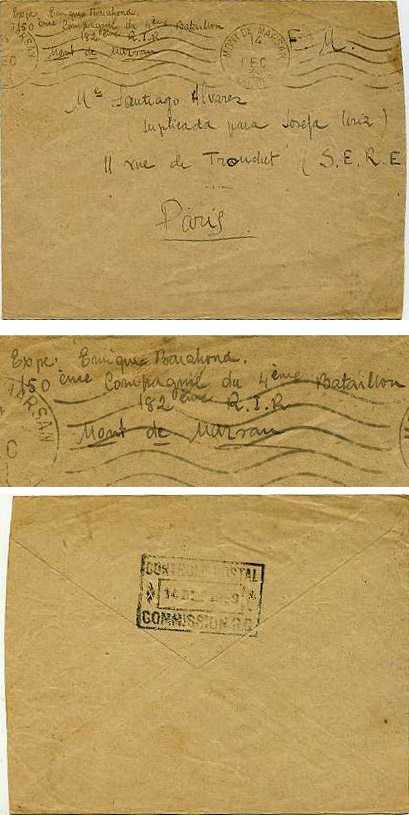 Expe. Enrique Barahona.
150 ème Compagnie du 4ème Bataillon
182ème R.I.R
Mont de Marsan
MONT DE MARSAN
14
DEC
F. M.
Mr Santiago Alvarez
Suplicada para Josefa Cruz)
11 rue de Tronchet (S.E.R.E
Paris
Expe. Enrique Barahona.
150 ème Compagnie du 4ème Bataillon
182ème R.I.R
Mont de Marsan
MARSAN
CONTROLE POSTAL
14 DEC 1939
COMMISSION